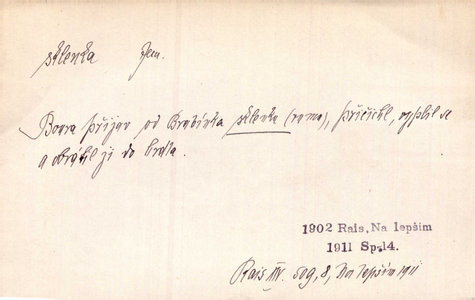 sklenka fem.
Boura přijav od Brabínka sklenku (rumu), přičichl, vyplil se
a obrátil ji do krku.
1902 Rais, Na lepším
1911 Sp.14.
Rais XIV. 509, 8, Na lepším 1911